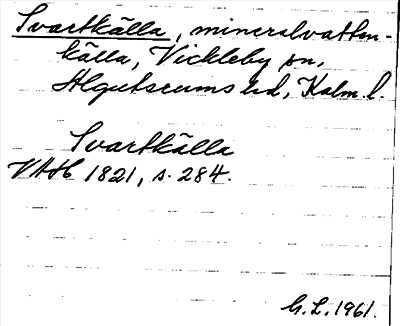 Svartkälla, mineralvatten-
källa, Vickleby sn,
Algutsrums hd, Kalm. l.
Svartkälla
VAH 1821, s. 284.
G.L. 1961.